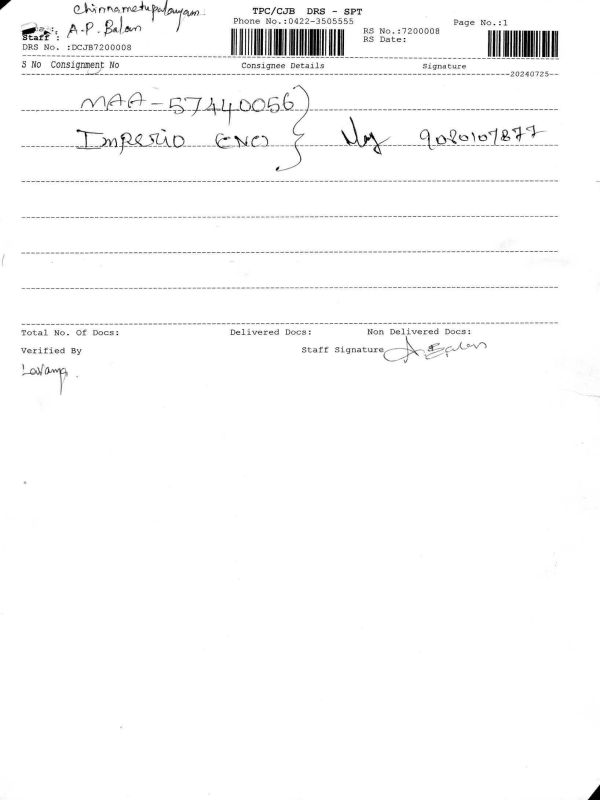 Chinnametupalayam
TPC/CJB DRS - SPT
Staff : A.P. Balan
Phone No.:0422-3505555
RS No.:7200008
Page No.:1
DRS No. :DCJB7200008
RS Date:
S No Consignment No Consignee Details Signature
20240725
MAA-57440056
Imperio ENO 9080107877
Total No. Of Docs: Delivered Docs: Non Delivered Docs:
Verified By Staff Signature A Balan